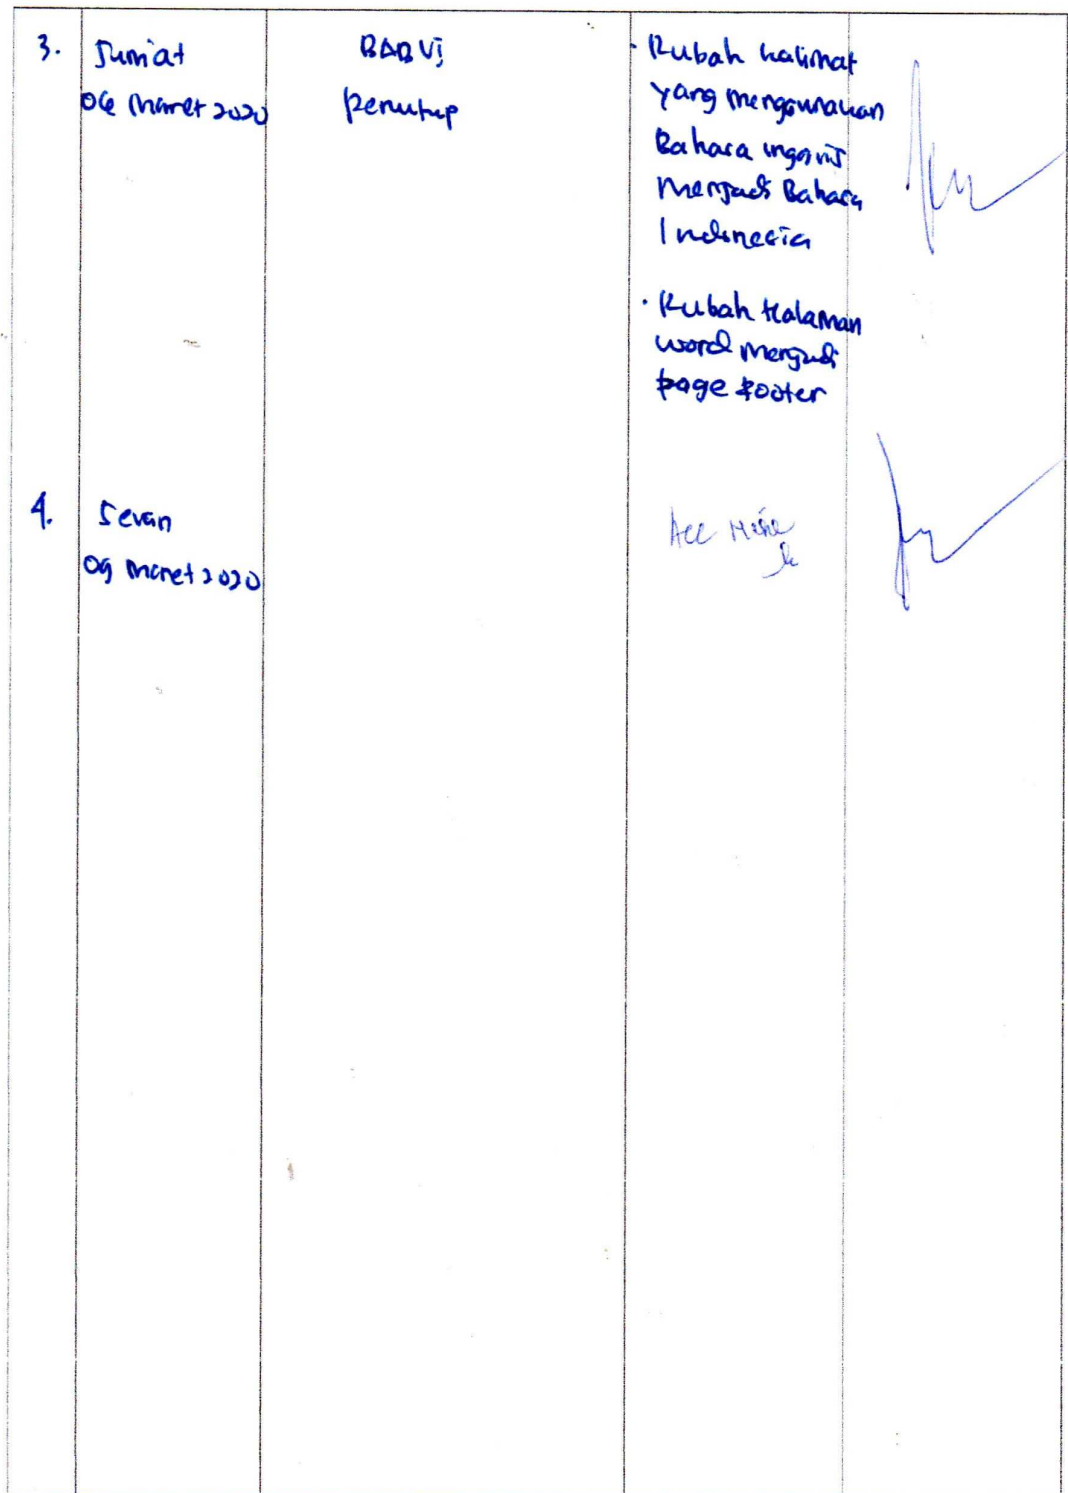 3.
Jum'at
06 Maret 2020
BAB VI
penutup
· Rubah kalimat
yang menggunakan
Bahasa inggris
menjadi Bahasa
Indonesia
· Rubah Halaman
word menjadi
page footer
4.
Senin
09 maret 2020
Acc